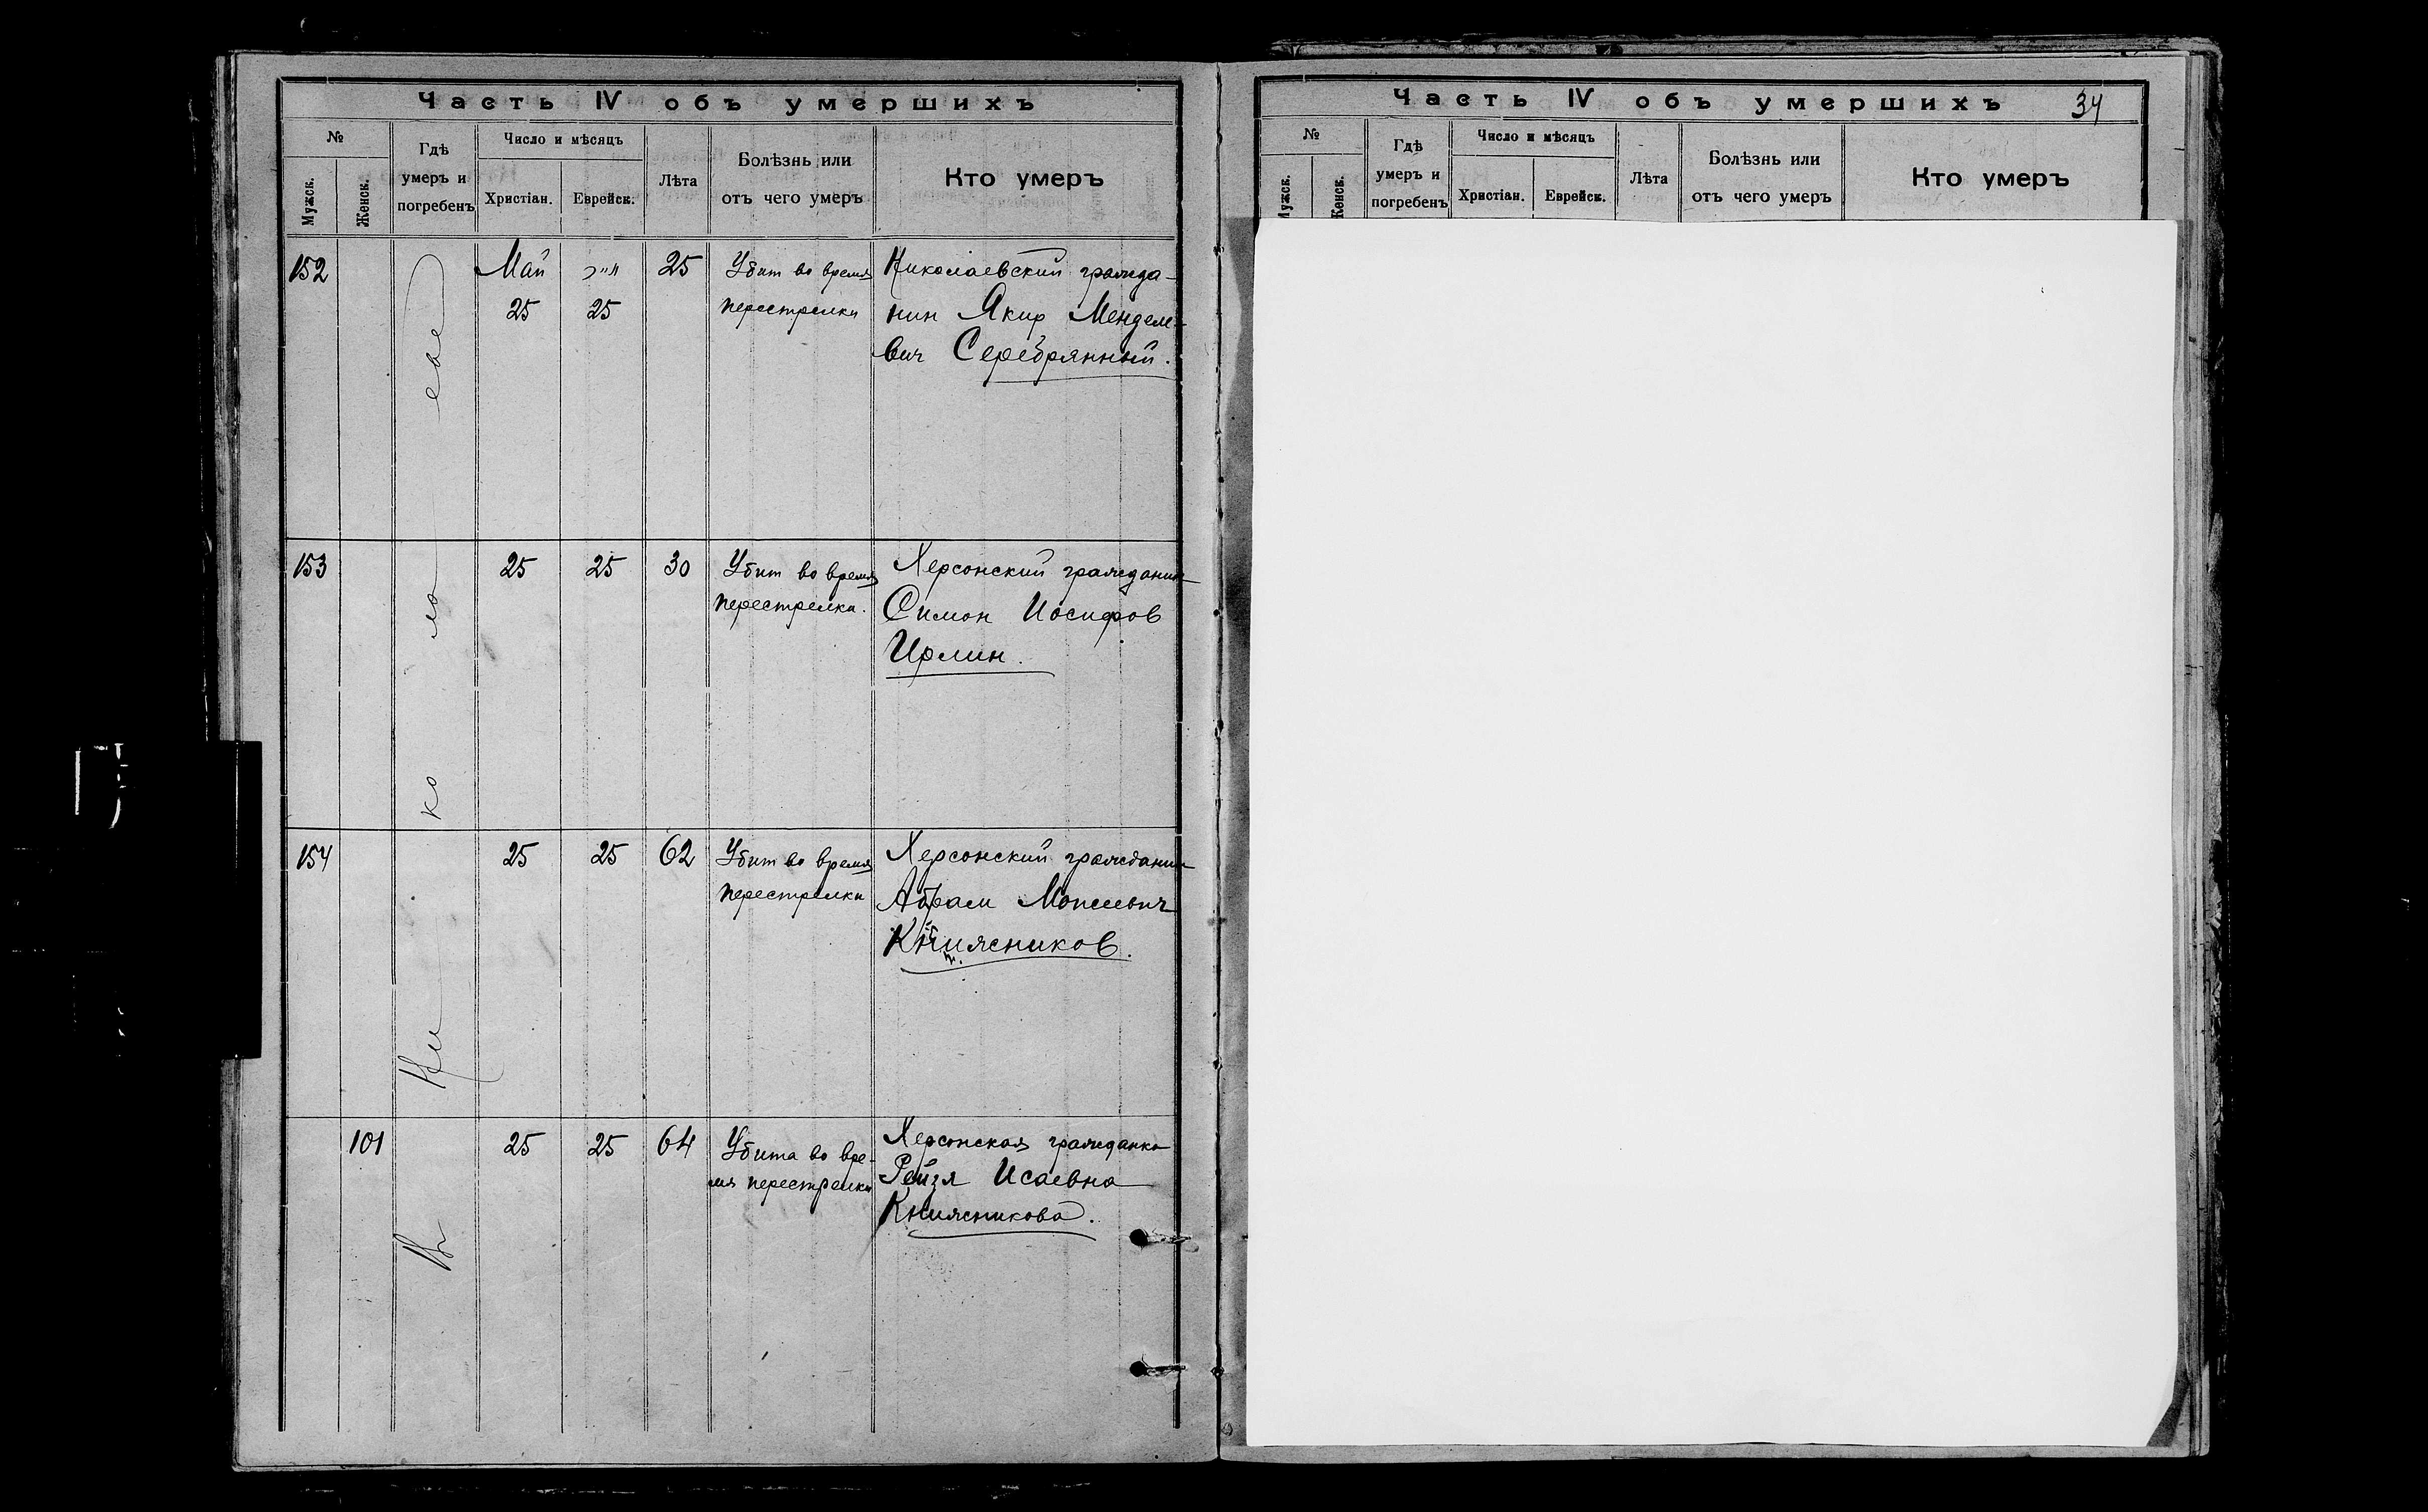 Часть IV объ умершихъ
№
Мужск.
Женск.
Гдѣ
умеръ и
погребенъ
Число и мѣсяцъ
Христіан.
Еврейск.
Лѣта
Болѣзнь или
отъ чего умеръ
Кто умеръ
152
Май
25
25
25
Убит во время
перестрелки
Николаевский гражда-
нин Якир Менделе-
вич Серебрянный.
153
25
25
30
Убит во время
перестрелки.
Херсонский гражданин
Симон Иосифов
Ирлин.
154
25
25
62
Убит во время
перестрелки
Херсонский гражданин
Абрам Моисеевич
101
25
25
64
Убита во вре-
мя перестрелки
Херсонская гражданка
Рейзя Исаевна
В Николаеве
Часть IV объ умершихъ
34
№
Мужск.
Женск.
Гдѣ
умеръ и
погребенъ
Число и мѣсяцъ
Христіан.
Еврейск.
Лѣта
Болѣзнь или
отъ чего умеръ
Кто умеръ